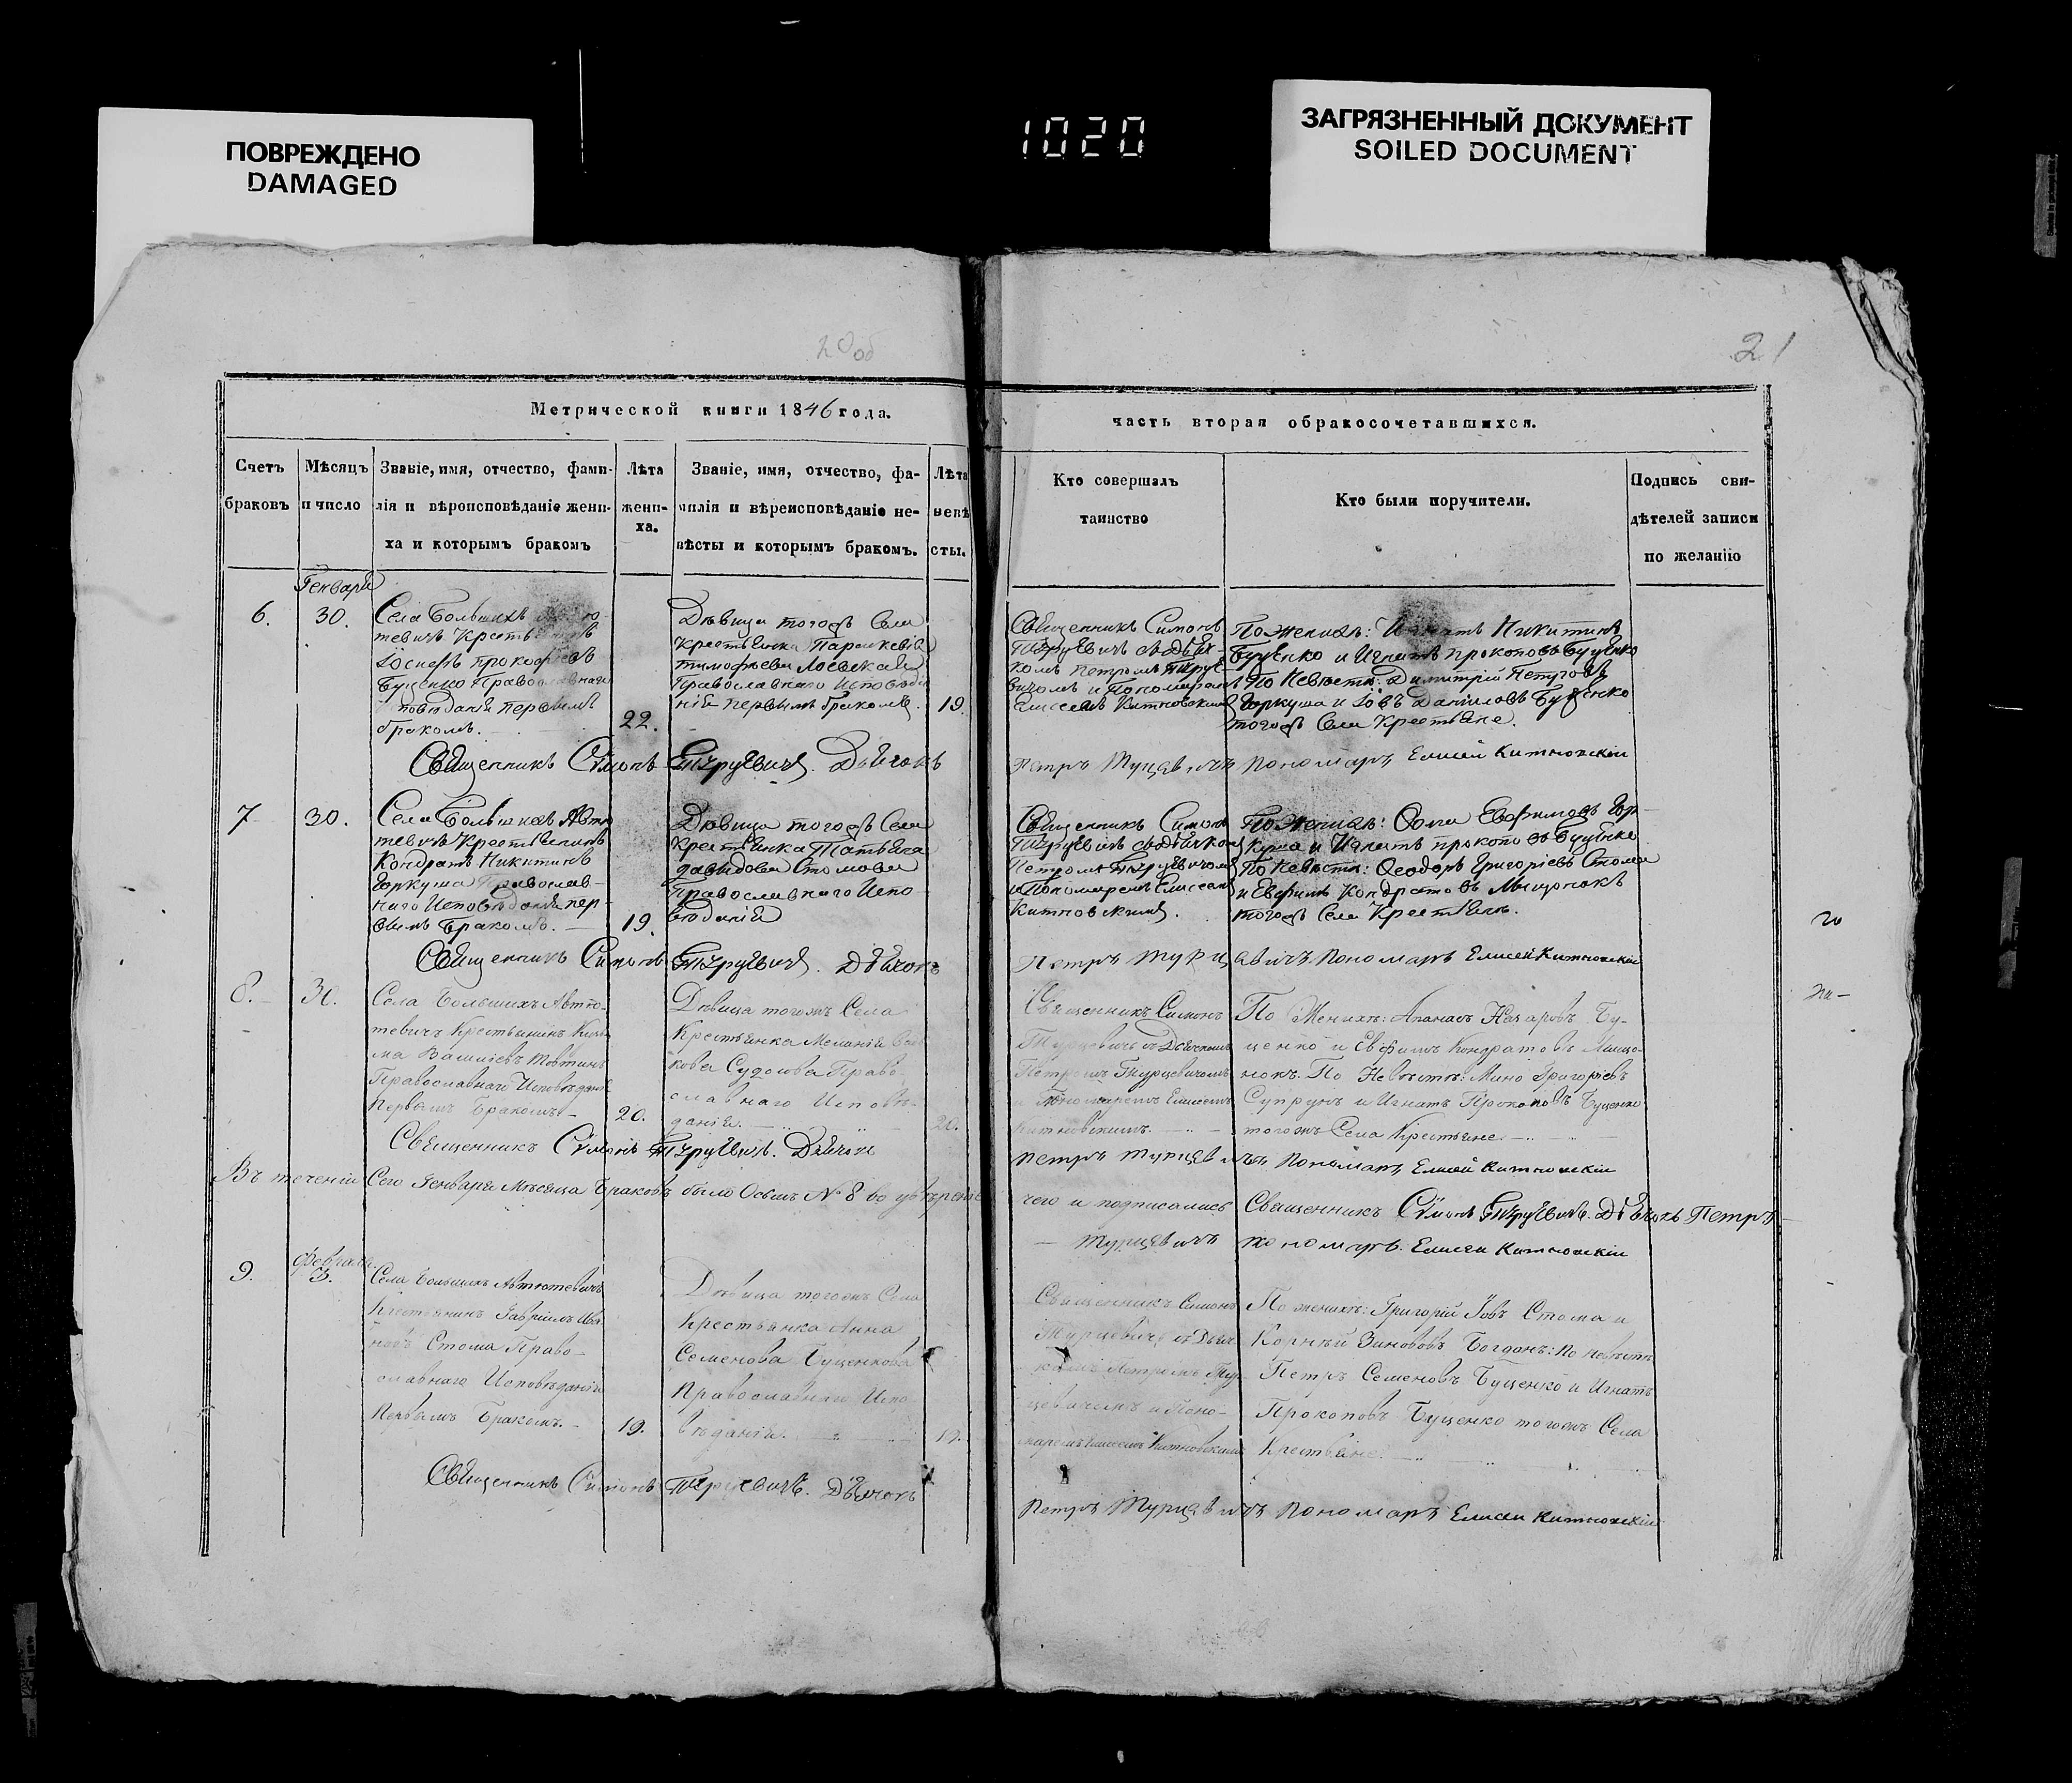 ПОВРЕЖДЕНО
DAMAGED
1020
ЗАГРЯЗНЕННЫЙ ДОКУМЕНТ
SOILED DOCUMENT
20об
21
Метрической книги 1846 года.
часть вторая обракосочетавшихся.
Счетъ
браковъ
Мѣсяцъ
и число
Званіе, имя, отчество, фами-
лія и вѣроисповѣданіе жени-
ха и которымъ бракомъ
Лѣта
жени-
ха.
Званіе, имя, отчество, фа-
милія и вѣреисповѣданіе не-
вѣсты и которымъ бракомъ.
Лѣта
невѣ
сты.
Кто совершалъ
таинство
Кто были поручители.
Подпись сви-
дѣтелей записи
по желанію
Генваря
6.
30.
Села Большихъ
тевичъ
Іосифъ Прокофіевъ
Буценко Православнаго
повѣданія первымъ
бракомъ.
22.
Дѣвица тогожъ Села
крестьянка Параскевія
тимофѣева Лоевская
Православнаго Исповѣда
нія первымъ бракомъ.
19.
Священникъ Симонъ
Турцевичъ съ Дьяч-
комъ Петромъ Турце-
вичомъ и Пономаремъ
Елисеемъ Китновскимъ
По Женихѣ: Игнатъ Никитинъ
Буценко и Игнатъ Прокоповъ Буценко
По Невѣстѣ: Димитрій Петровъ
Горкуша и Іовъ Даніиловъ Буценко
тогожъ Села Крестьяне.
Священникъ Симонъ Турцевичъ. Дьячокъ
Петръ Турцевичъ Пономаръ Елисей Китновскій
7
30.
Села Большихъ Авто
тевичъ Крестьянинъ
Кондратъ Никитинъ
Горкуша Православ-
наго Исповѣданія пер-
вымъ Бракомъ.
19.
Дѣвица тогожъ Села
крестьянка Татьяна
давидова Стомова
Православнаго Испо
вѣданія
Священникъ Симонъ
Турцевичъ съ Дьячкомъ
Петромъ Турцевичомъ
и Пономаремъ Елисеемъ
Китновскимъ.
По Женихѣ: Ѳома Евфимовъ Гор-
куша и Игнатъ Прокоповъ Буценко
По Невѣстѣ: Ѳеодоръ Григоріевъ Стома
и Евфимъ Кондратовъ Мицонокъ
тогожъ Села Крестьяне.
Священникъ Симонъ Турцевичъ. Дьячокъ
Петръ Турцевичъ Пономаръ Елисей Китновскій
8.
30.
Села Большихъ Автю-
тевичъ Крестьянинъ Кузь-
ма Василіевъ Товтинъ
Православнаго Исповѣданія
Первымъ Бракомъ
20.
Дѣвица тогожъ Села
Крестьянка Меланія
кова Судокова Право-
славнаго Исповѣ-
данія.
20.
Священникъ Симонъ
Турцевичъ съ Дьячкомъ
Петромъ Турцевичомъ
и Пономаремъ Елисеемъ
Китновскимъ.
По Женихѣ: Апанасъ Назаровъ Бу-
ценко и Евфимъ Кондратовъ Мицо-
нокъ. По Невѣстѣ: Мино Григоріевъ
Супрунъ и Игнатъ Прокоповъ Буценко
тогожъ Села Крестьяне.
Священникъ Симонъ Турцевичъ. Дьячокъ
Петръ Турцевичъ Пономаръ Елисей Китновскій
Въ теченіи Сего Генваря Мѣсяца Браковъ было Осьмъ № 8 во увѣреніе
чего и подписались Священникъ Симонъ Турцевичъ. Дьячокъ Петръ
Турцевичъ Пономаръ. Елисей Китновскій
Февраля
9.
3.
Села Большихъ Автютевичъ
Крестьянинъ Гавріилъ Ива
новъ Стома Право-
славнаго Исповѣданія
Первымъ Бракомъ.
19.
Дѣвица тогожъ Села
Крестьянка Анна
Семенова Буценкова
Православнаго Испо
вѣданія.
19.
Священникъ Симонъ
Турцевичъ съ Дьяч-
комъ Петромъ Тур-
цевичемъ и Поно-
маремъ Елисеемъ Китновскимъ
По женихѣ: Григорій Іовъ Стома и
Корнѣй Зинововъ Богданъ: По невѣстѣ
Петръ Семеновъ Буценко и Игнатъ
Прокоповъ Буценко тогожъ Села
Крестьяне.
Священникъ Симонъ Турцевичъ. Дьячокъ
Петръ Турцевичъ Пономаръ Елисей Китновскій